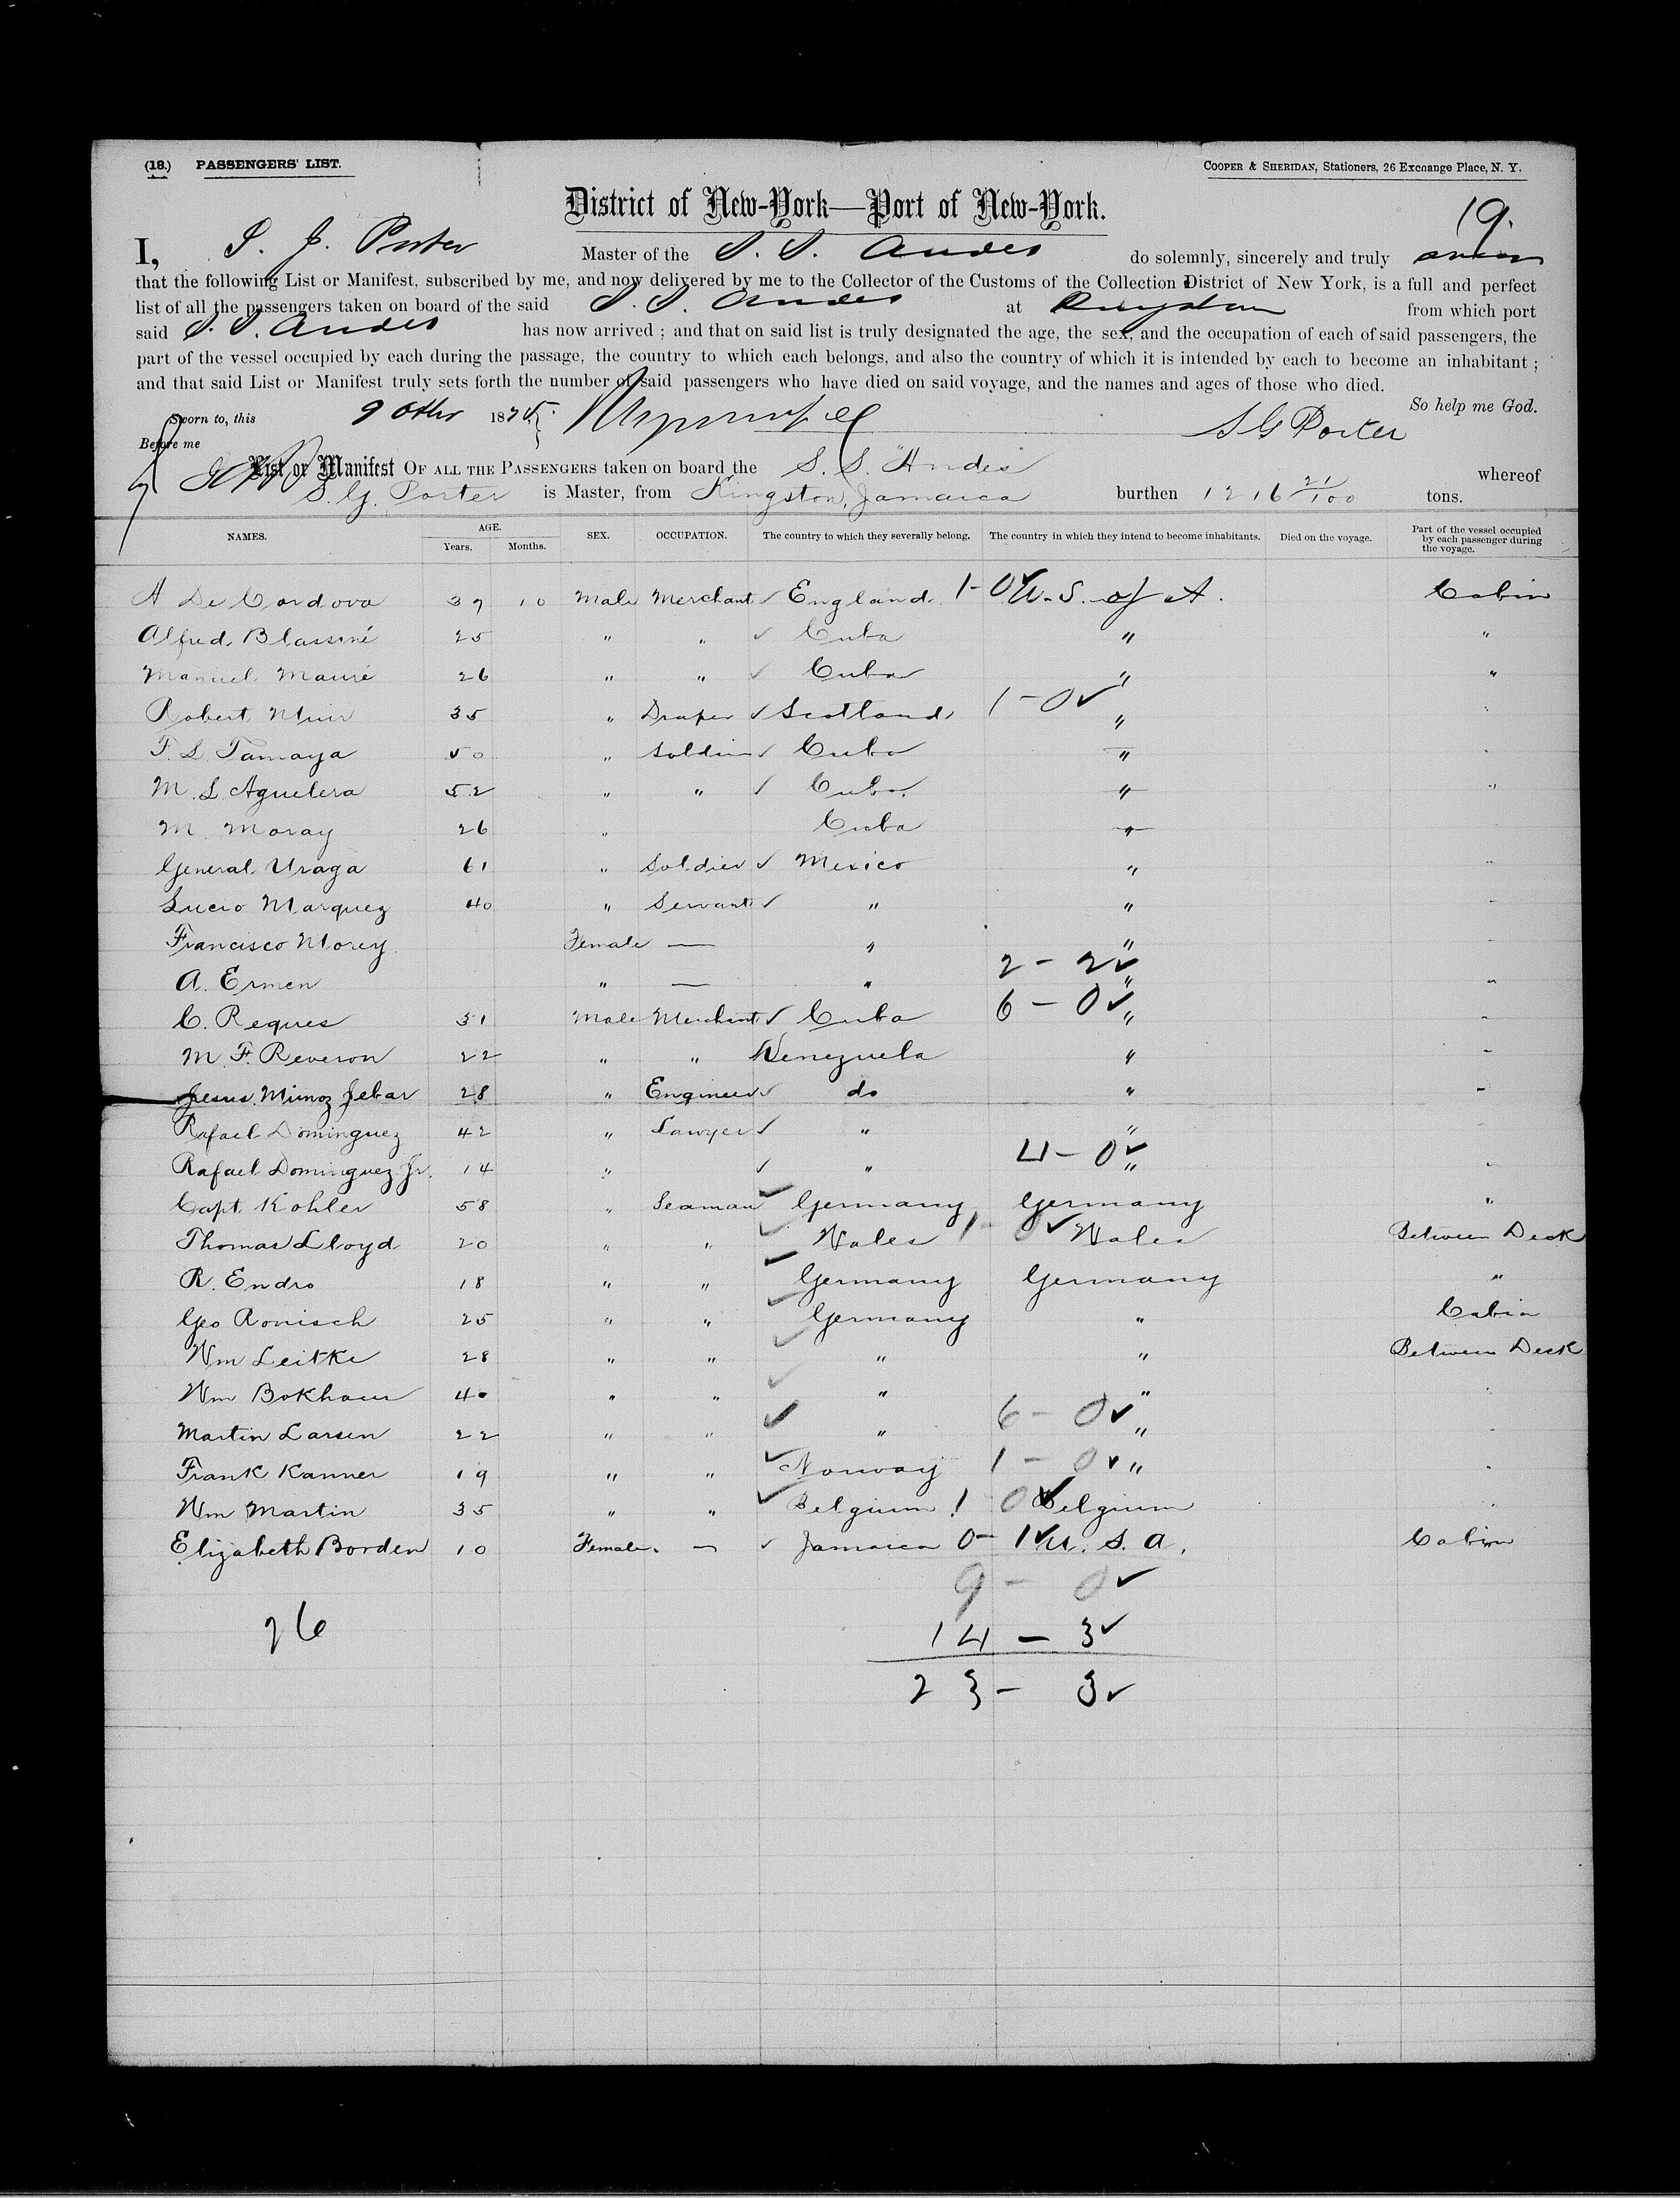 (18.) PASSENGERS' LIST. COOPER & SHERIDAN, Stationers, 26 Exchange Place, N. Y.
District of New-York—Port of New-York.
19.
I, S. G. Porter Master of the S. S. Andes do solemnly, sincerely and truly swear
that the following List or Manifest, subscribed by me, and now delivered by me to the Collector of the Customs of the Collection District of New York, is a full and perfect
list of all the passengers taken on board of the said S. S. Andes at Kingston from which port
said S. S. Andes has now arrived ; and that on said list is truly designated the age, the sex, and the occupation of each of said passengers, the
part of the vessel occupied by each during the passage, the country to which each belongs, and also the country of which it is intended by each to become an inhabitant ;
and that said List or Manifest truly sets forth the number of said passengers who have died on said voyage, and the names and ages of those who died.
Sworn to, this 9 1875. So help me God.
Before me S G Porter
List or Manifest OF ALL THE PASSENGERS taken on board the S. S. Andes whereof
S. G. Porter is Master, from Kingston, Jamaica burthen 1216 21/100 tons.
NAMES. AGE. Years. Months. SEX. OCCUPATION. The country to which they severally belong. The country in which they intend to become inhabitants. Died on the voyage. Part of the vessel occupied by each passenger during the voyage.
A De Cordova 39 10 Male Merchant ✓ England 1-0✓ U. S. of A. Cabin
Alfred Blassiné 25 " " ✓ Cuba " "
Manuel Mauré 26 " " ✓ Cuba " "
Robert Muir 35 " Draper ✓ Scotland 1-0✓ " "
F. L. Tamaya 50 " Soldier ✓ Cuba " "
M. L Aguilera 52 " " ✓ Cuba " "
M. Moray 26 " Cuba " "
General Uraga 61 " Soldier ✓ Mexico " "
Lucio Marquez 40 " Servant ✓ " " "
Francisco Morey Female — " " "
A. Ermen " — " 2-2✓ " "
C. Reques 31 Male Merchant ✓ Cuba 6-0✓ " "
M. F. Reveron 22 " " Venezuela " "
Jesus Munoz Jebar 28 " Engineer ✓ do " "
Rafael Dominguez 42 " Lawyer ✓ " " "
Rafael Dominguez Jr. 14 " ✓ " 4-0✓ " "
Capt. Kohler 58 " Seaman ✓ Germany Germany "
Thomas Lloyd 20 " " ✓ Wales 1-0✓ Wales Between Deck
R. Endro 18 " " ✓ Germany Germany "
Geo Ronisch 25 " " ✓ Germany " Cabin
Wm Leitke 28 " " ✓ " " Between Deck
Wm Bokhaus 40 " " ✓ " " "
Martin Larsen 22 " " ✓ " 6-0✓ " "
Frank Kanner 19 " " ✓ Norway 1-0✓ " "
Wm Martin 35 " " ✓ Belgium 1 0✓ Belgium "
Elizabeth Borden 10 Female. — ✓ Jamaica 0-1✓ U. S. A. Cabin
9 - 0✓
26 14 - 3✓
23 - 3✓